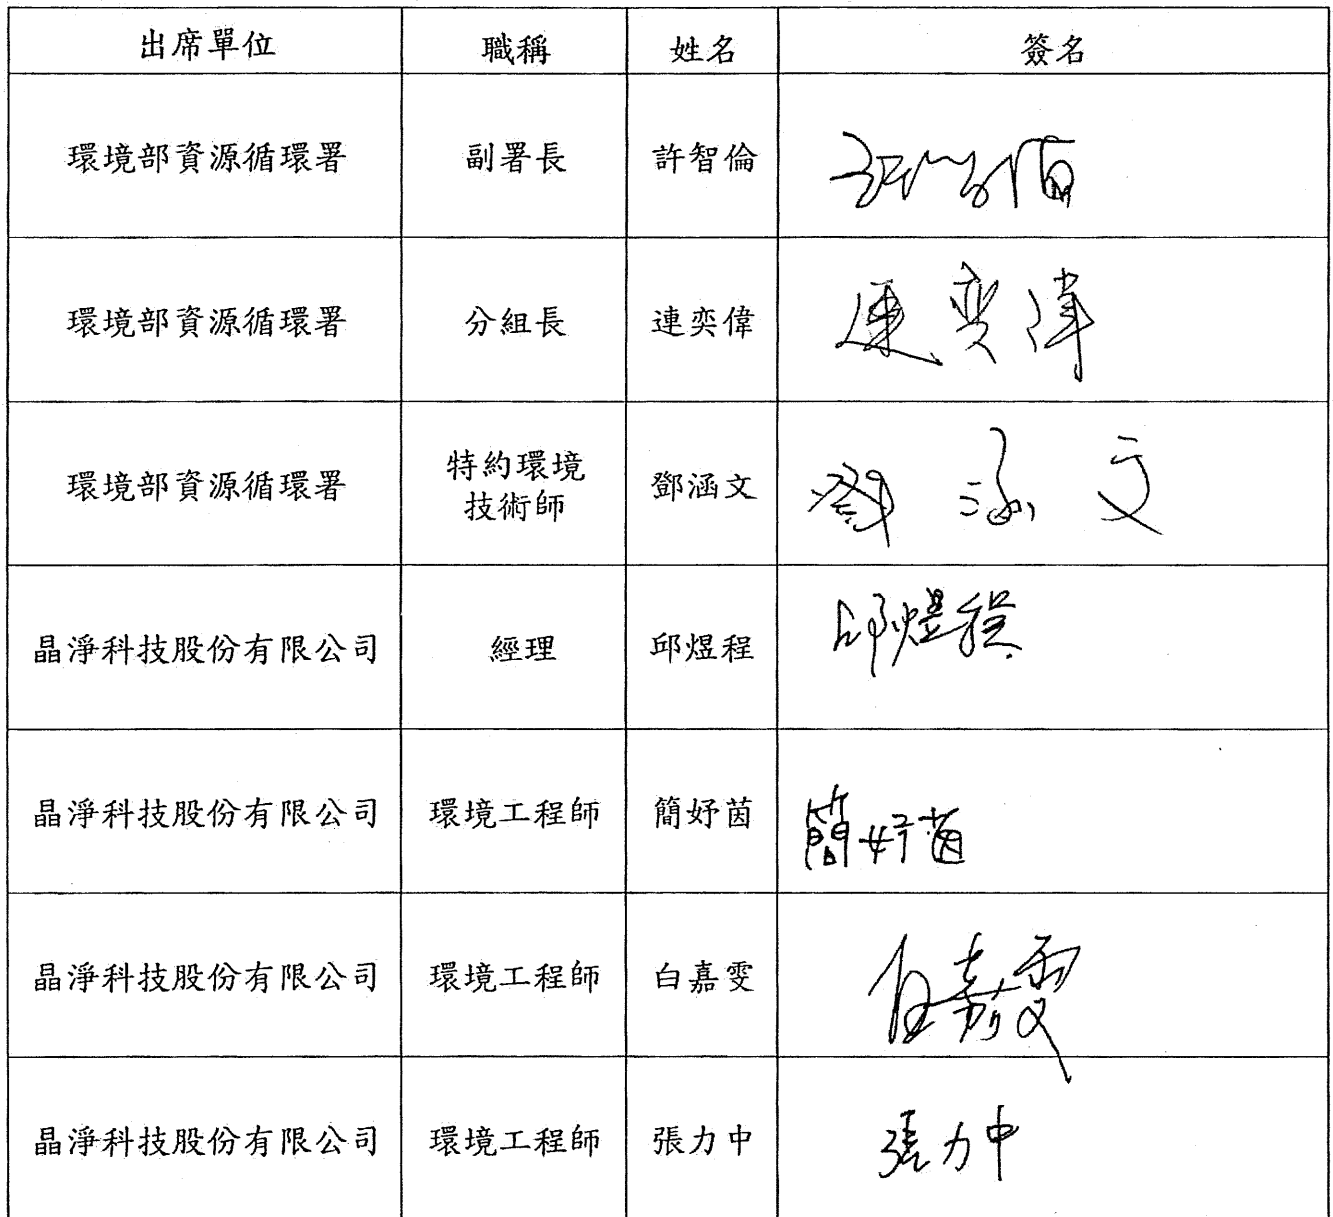 出席單位 職稱 姓名 簽名
環境部資源循環署 副署長 許智倫 許智倫
環境部資源循環署 分組長 連奕偉 連奕偉
環境部資源循環署 特約環境技術師 鄧涵文 鄧涵文
晶淨科技股份有限公司 經理 邱煜程 邱煜程
晶淨科技股份有限公司 環境工程師 簡妤茵 簡妤茵
晶淨科技股份有限公司 環境工程師 白嘉雯 白嘉雯
晶淨科技股份有限公司 環境工程師 張力中 張力中